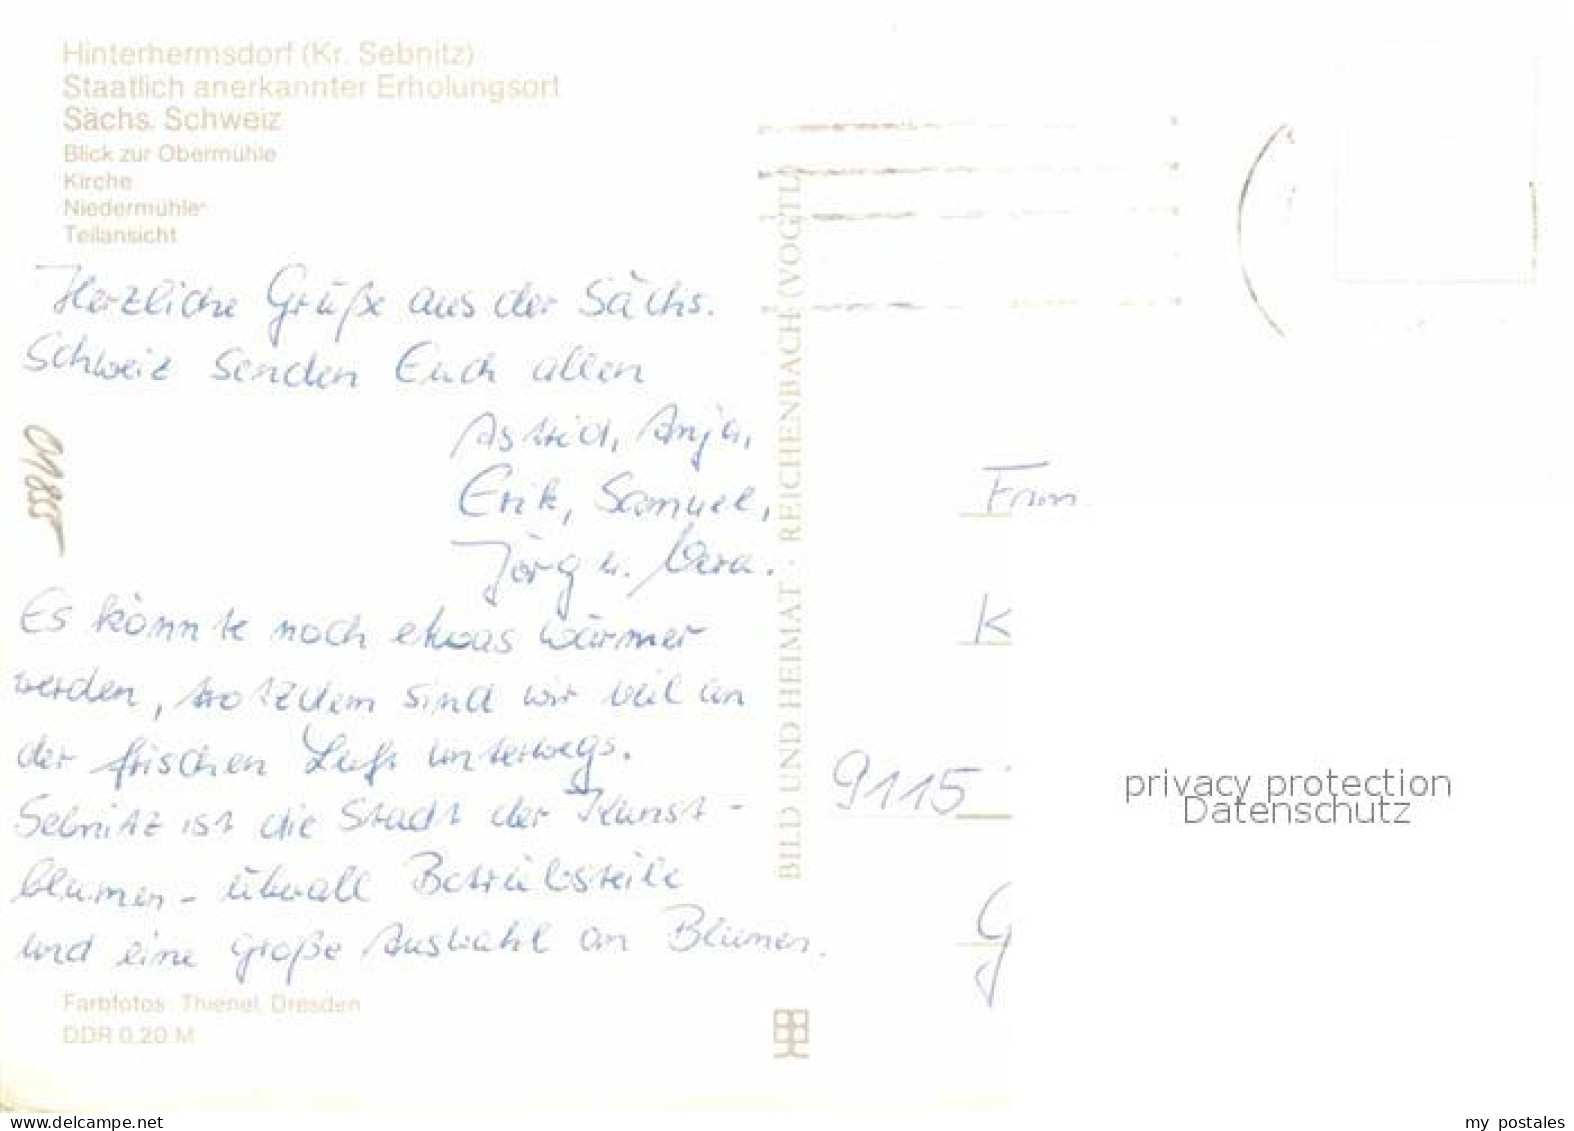 Hinterhermsdorf (Kr. Sebnitz)
Staatlich anerkannter Erholungsort
Sächs. Schweiz
Blick zur Obermühle
Kirche
Niedermühle
Teilansicht
Herzliche Grüße aus der Sächs.
Schweiz senden Euch allen
Astrid, Anja,
Erik, Samuel,
Jörg u. Vera.
Es könnte noch etwas wärmer
werden, trotzdem sind wir viel an
der frischen Luft unterwegs.
Sebnitz ist die Stadt der Kunst-
blumen - überall Betriebsteile
und eine große Auswahl an Blumen.
Farbfotos: Thienel, Dresden
DDR 0,20 M
BILD UND HEIMAT · REICHENBACH (VOGTL)
K
9115
G
privacy protection
Datenschutz
www.delcampe.net
my_postales